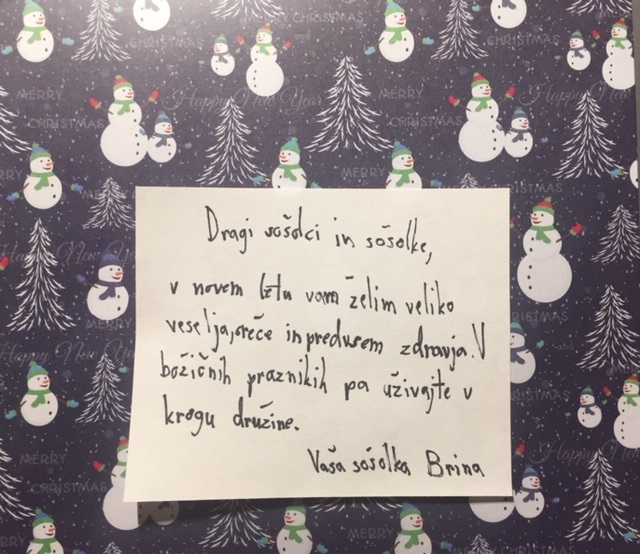 Dragi sošolci in sošolke,
v novem letu vam želim veliko
veselja, sreče in predvsem zdravja. V
božičnih praznikih pa uživajte v
krogu družine.
Vaša sošolka Brina
MERRY CHRISTMAS
Happy New Year